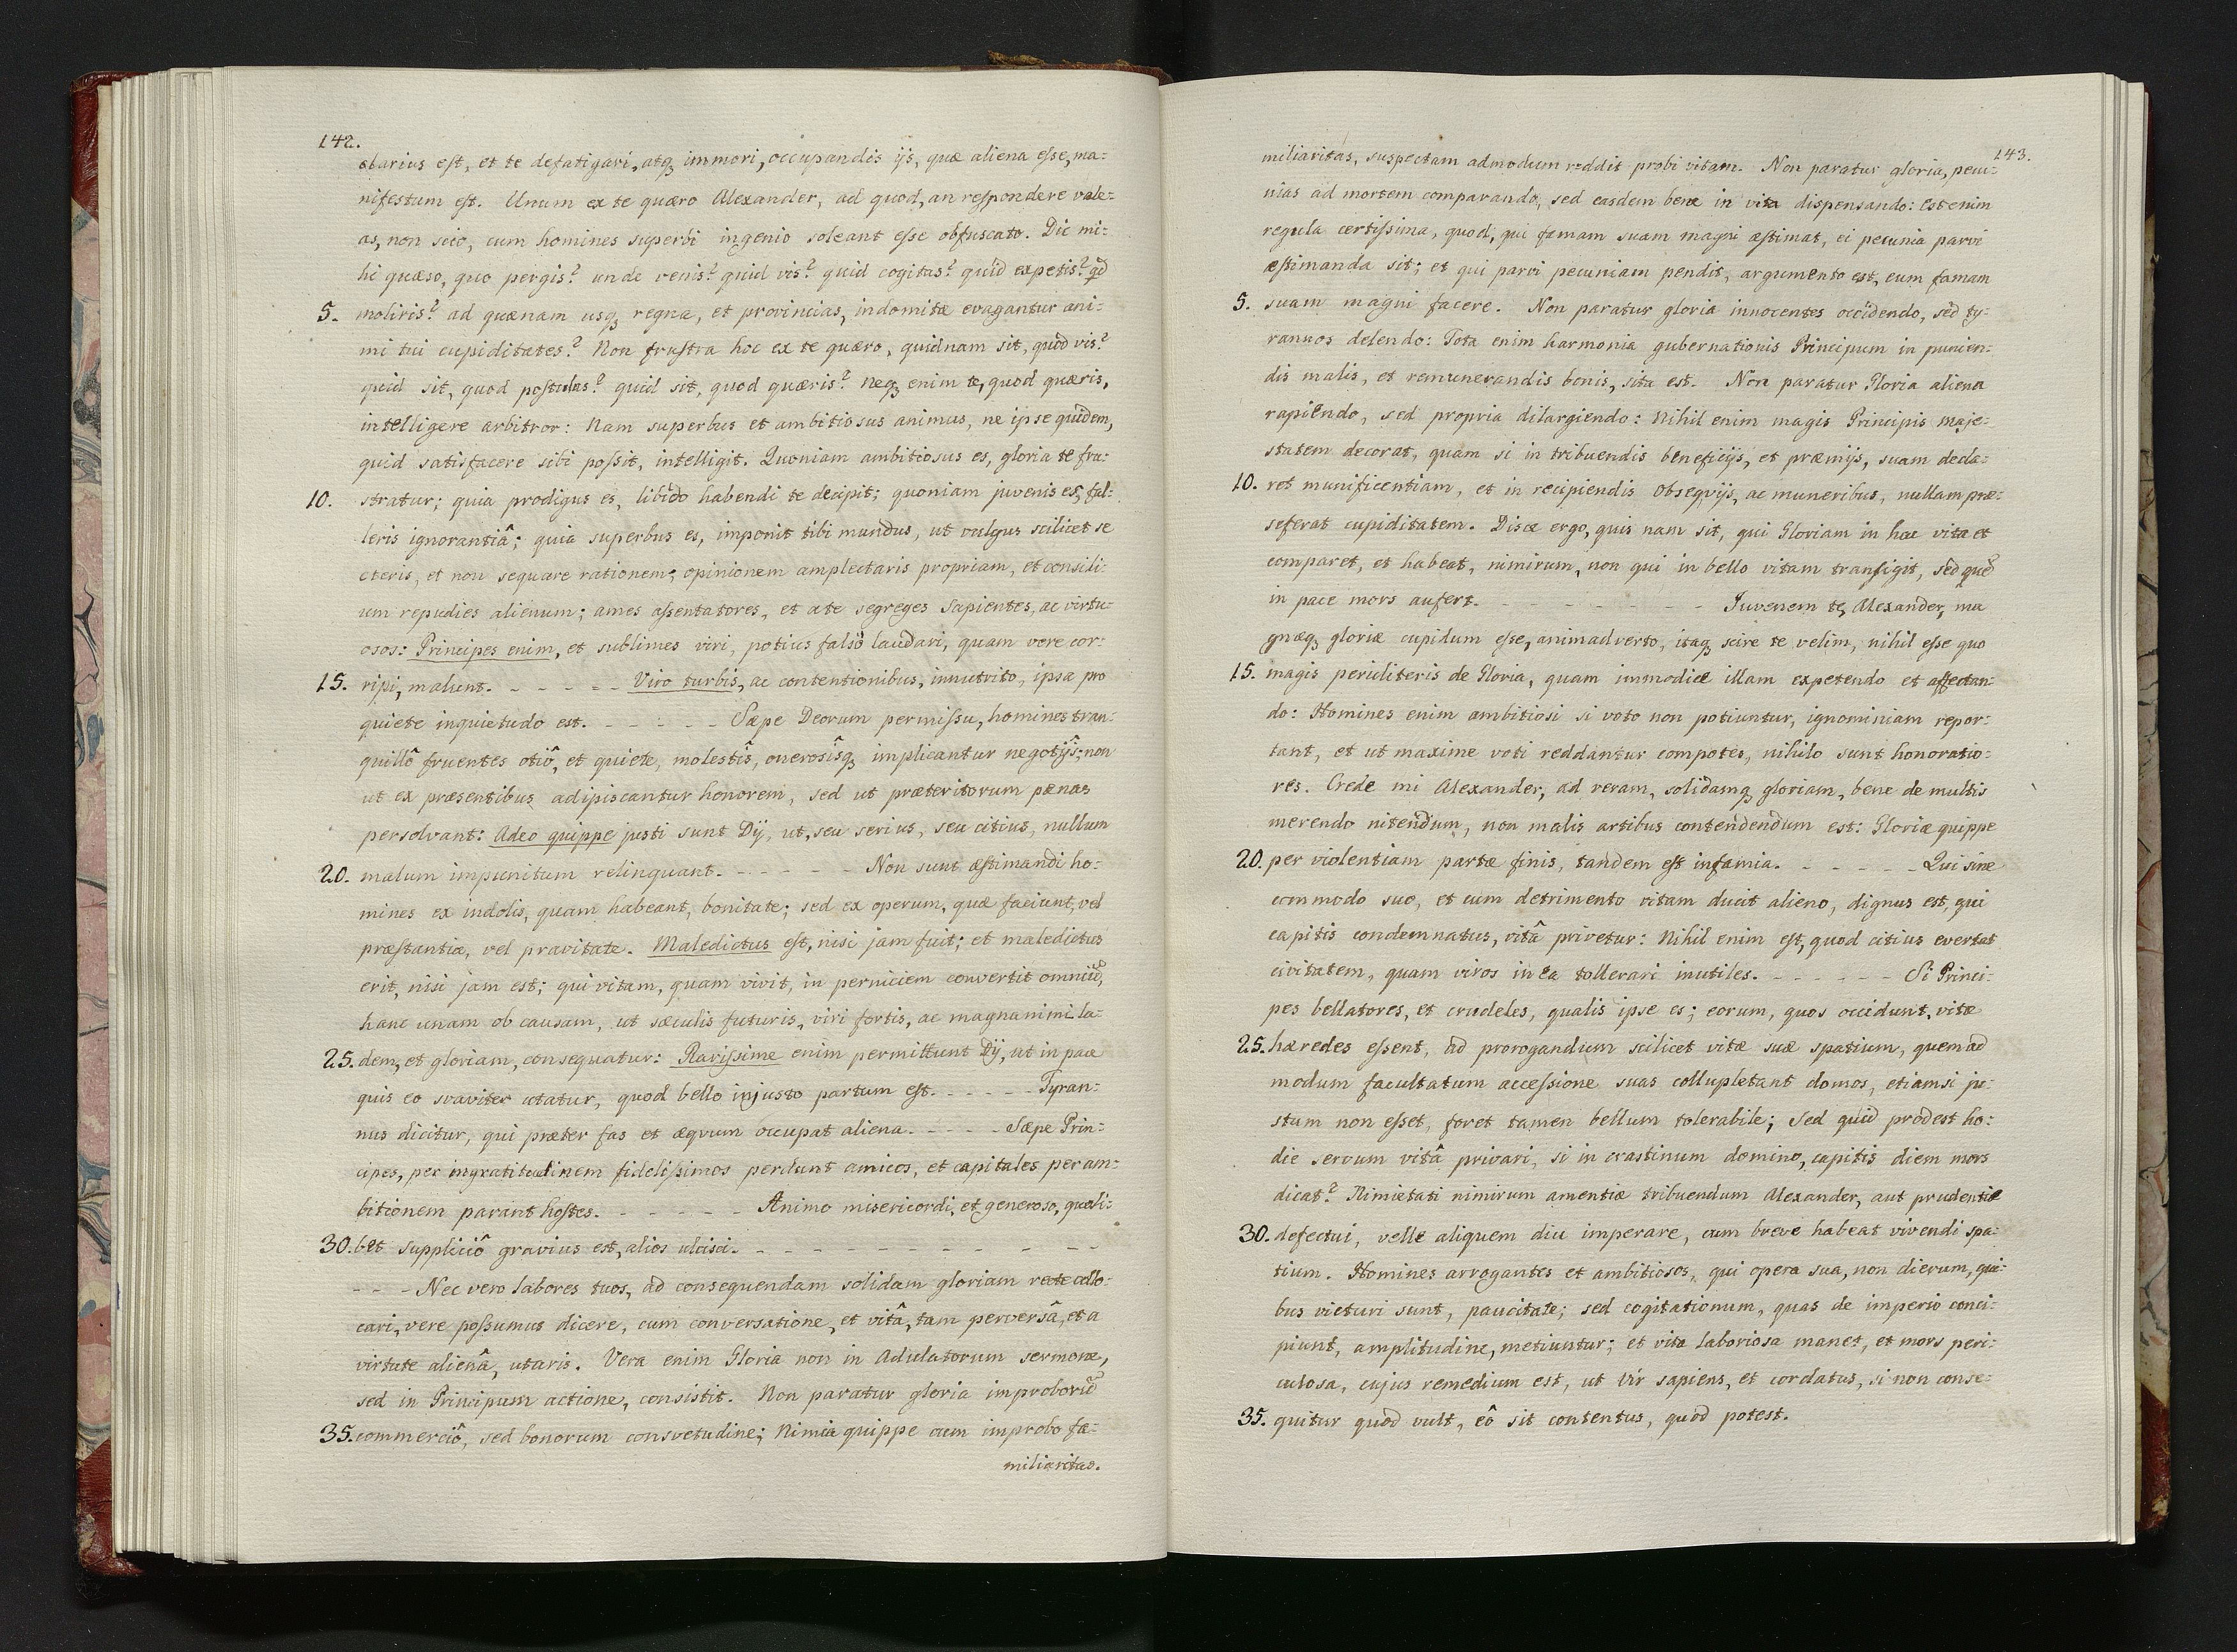 142.
clarius est, et te defatigari, atq; immori, occupandis ijs, quæ aliena esse, ma-
nifestum est. Unum ex te quæro Alexander, ad quod, an respondere vale-
as, non scio, cum homines superbi ingenio soleant esse obfuscato. Dic mi-
hi quæso, quo pergis? unde venis? quid vis? quid cogitas? quid expetis? qd
5. moliris? ad quænam usq; regna, et provincias, indomitæ evagantur ani-
mi tui cupiditates? Non frustra hoc ex te quæro, quidnam sit, quod vis?
quid sit, quod postulas? quid sit, quod quæris? neq; enim te, quod quæris,
intelligere arbitror: Nam superbus et ambitiosus animus, ne ipse quidem,
quid satisfacere sibi possit, intelligit. Quoniam ambitiosus es, gloria te fru-
10. stratur; quia prodigus es, libido habendi te decipit; quoniam juvenis es, fal-
leris ignorantiâ; quia superbus es, imponit tibi mundus, ut vulgus scilicet se
cteris, et non sequare rationem; opinionem amplectaris propriam, et consili-
um repudies alienum; ames assentatores, et a te segreges sapientes, ac virtu-
osos: Principes enim, et sublimes viri, potius falsò laudari, quam vere cor-
15. ripi, malunt. - - - - - Viro turbis, ac contentionibus, innutrito, ipsa pro
quiete inquietudo est. - - - - - Sæpe Deorum permissu, homines tran-
quillô fruentes otiô, et quiete, molestîs, onerosîsq; implicantur negotijs; non
ut ex præsentibus adipiscantur honorem, sed ut præteritorum pænas
persolvant: Adeo quippe justi sunt Dij, ut, seu serius, seu citius, nullum
20. malum impunitum relinquant. - - - - - - Non sunt æstimandi ho-
mines ex indolis, quam habeant, bonitate; sed ex operum, quæ faciunt, vel
præstantia, vel pravitate. Maledictus est, nisi jam fuit; et maledictus
erit, nisi jam est; qui vitam, quam vivit, in perniciem convertit omniũ,
hanc unam ob causam, ut sæculis futuris, viri fortis, ac magnanimi la-
25. dem, et gloriam, consequatur: Rarissime enim permittunt Dij, ut in pace
quis eo svaviter utatur, quod bello injusto partum est. - - - - - Tyran-
nus dicitur, qui præter fas et æqvum occupat aliena. - - - - Sæpe Prin-
cipes, per ingratitudinem fidelissimos perdunt amicos, et capitales per am-
bitionem parant hostes. - - - - - - Animo misericordi, et generoso, quoli-
30. bet suppliciô gravius est, alios ulcisci. - - - - - - - - - -
- - - Nec vero labores tuos, ad consequendam solidam gloriam recte collo-
cari, vere possumus dicere, cum conversatione, et vitâ, tam perversâ, et a
virtute alienâ, utaris. Vera enim Gloria non in Adulatorum sermone,
sed in Principum actione, consistit. Non paratur gloria improborũ
35. commerciô, sed bonorum consvetudine; Nimia quippe cum improbo fa-
miliaritas.
143.
miliaritas, suspectam admodum reddit probi vitam. Non paratur gloria, pecu-
nias ad mortem comparando, sed easdem bene in vita dispensando: Est enim
regula certissima, quod, qui famam suam magni æstimat, ei pecunia parvi
æstimanda sit; et qui parvi pecuniam pendit, argumento est, eum famam
5. suam magni facere. Non paratur gloria innocentes occidendo, sed ty-
rannos delendo: Tota enim harmonia gubernationis Principum in punien-
dis malis, et remunerandis bonis, sita est. Non paratur Gloria aliena
rapiendo, sed propria dilargiendo: Nihil enim magis Principis maje-
statem decorat, quam si in tribuendis beneficijs, et præmijs, suam decla-
10. ret munificentiam, et in recipiendis obseqvijs, ac muneribus, nullam præ-
seferat cupiditatem. Disce ergo, quis nam sit, qui Gloriam in hac vita et
comparet, et habeat, nimirum, non qui in bello vitam transigit, sed quẽ
in pace mors aufert. - - - - - - - - - Juvenem te, Alexander, ma
gnæq; gloriæ cupidum esse, animadverto, itaq; scire te velim, nihil esse quo
15. magis pericliteris de Gloria, quam immodice illam expetendo et affectan-
do: Homines enim ambitiosi si voto non potiuntur, ignominiam repor-
tant, et ut maxime voti reddantur compotes, nihilo sunt honoratio-
res. Crede mi Alexander, ad veram, solidamq; gloriam, bene de multis
merendo nitendum, non malis artibus contendendum est: Gloriæ quippe
20. per violentiam partæ finis, tandem est infamia. - - - - - Qui sine
commodo suo, et cum detrimento vitam ducit alieno, dignus est, qui
capitis condemnatus, vitâ privetur: Nihil enim est, quod citius evertat
civitatem, quam viros in ea tollerari inutiles. - - - - - - Si Princi-
pes bellatores, et crudeles, qualis ipse es; eorum, quos occidunt, vitæ
25. hæredes essent, ad prorogandum scilicet vitæ suæ spatium, quemad
modum facultatum accessione suas collupletant domos, etiamsi ju-
stum non esset, foret tamen bellum tolerabile; Sed quid prodest ho-
die servum vitâ privari, si in crastinum domino, capitis diem mors
dicat? Nimietati nimirum amentiæ tribuendum Alexander, aut prudentiæ
30. defectui, velle aliquem diu imperare, cum breve habeat vivendi spa-
tium. Homines arrogantes et ambitiosos, qui opera sua, non dierum, qui-
bus victuri sunt, paucitate; sed cogitationum, quas de imperio conci-
piunt, amplitudine, metiuntur; et vita laboriosa manet, et mors peri-
culosa, cujus remedium est, ut Vir sapiens, et cordatus, si non conse-
35. quitur quod vult, eô sit contentus, quod potest.